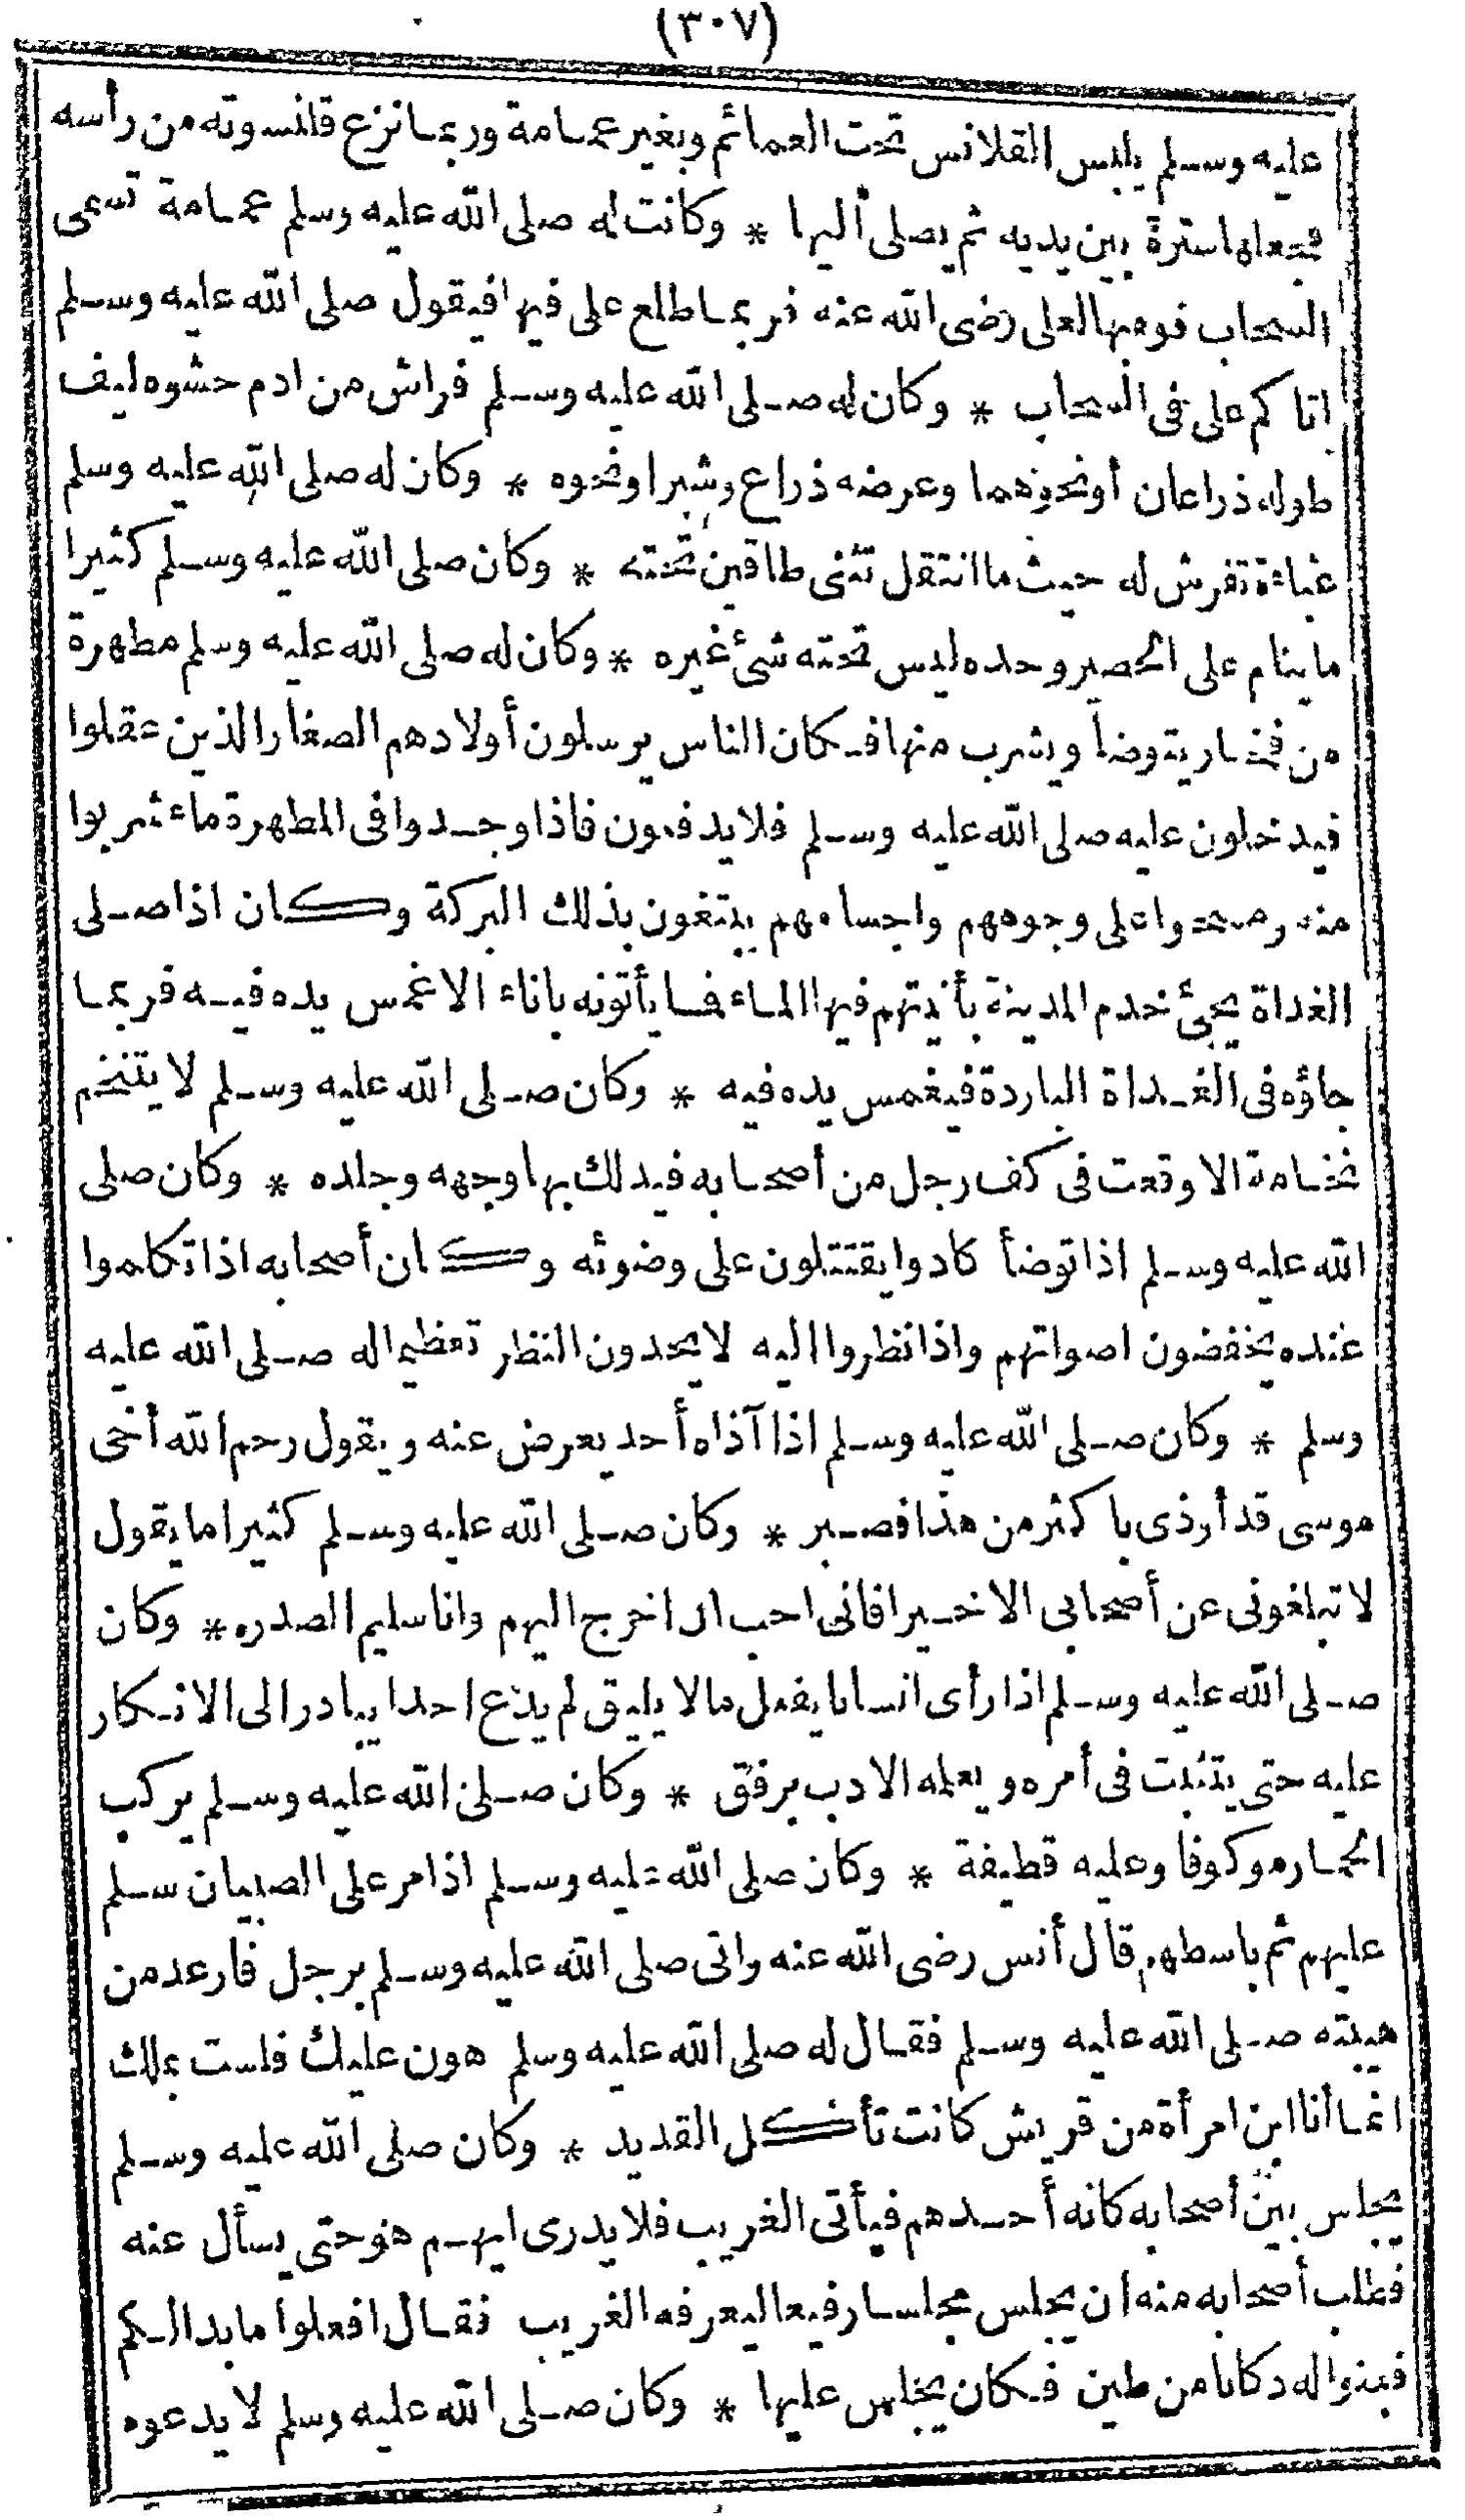 (٣٠٧)
عليه وسلم يلبس القلانس تحت العمائم وبغير عمامة وربما نزع قلنسوته من رأسه
فجعلها سترة بين يديه ثم يصلى اليها * وكانت له صلى الله عليه وسلم عمامة تسمى
السحاب فوهبها لعلى رضى الله عنه فربما طلع على فيها فيقول صلى الله عليه وسلم
اتاكم على فى السحاب * وكان له صلى الله عليه وسلم فراش من ادم حشوه ليف
طوله ذراعان أو نحوهما وعرضه ذراع وشبر او نحوه * وكان له صلى الله عليه وسلم
عباءة تفرش له حيث ما انتقل تثنى طاقين تحته * وكان صلى الله عليه وسلم كثيرا
ما ينام على الحصير وحده ليس تحته شئ غيره * وكان له صلى الله عليه وسلم مطهرة
من فخار يتوضأ ويشرب منها فكان الناس يرسلون أولادهم الصغار الذين عقلوا
فيدخلون عليه صلى الله عليه وسلم فلا يدفعون فاذا وجدوا فى المطهرة ماء شربوا
منه ومسحوا على وجوههم واجسامهم يبتغون بذلك البركة وكان اذا صلى
الغداة يجئ خدم المدينة بأنيتهم فيها الماء فما يأتونه باناء الا غمس يده فيه فربما
جاؤه فى الغداة الباردة فيغمس يده فيه * وكان صلى الله عليه وسلم لا يتنخم
نخامة الا وقعت فى كف رجل من أصحابه فيدلك بها وجهه وجلده * وكان صلى
الله عليه وسلم اذا توضأ كادوا يقتتلون على وضوئه وكان أصحابه اذا تكلموا
عنده يخفضون اصواتهم واذا نظروا اليه لا يحدون النظر تعظيما له صلى الله عليه
وسلم * وكان صلى الله عليه وسلم اذا آذاه أحد يعرض عنه ويقول رحم الله أخى
موسى قد أوذى باكثر من هذا فصبر * وكان صلى الله عليه وسلم كثيرا ما يقول
لا تبلغونى عن أصحابى الا خيرا فانى احب ان اخرج اليهم وانا سليم الصدره * وكان
صلى الله عليه وسلم اذا رأى انسانا يفعل ما لا يليق لم يدع احدا يبادر الى الانكار
عليه حتى يتثبت فى أمره ويعلمه الادب برفق * وكان صلى الله عليه وسلم يركب
الحمار موكوفا وعليه قطيفة * وكان صلى الله عليه وسلم اذا مر على الصبيان سلم
عليهم ثم باسطهم قال أنس رضى الله عنه واتى صلى الله عليه وسلم برجل فارعد من
هيبته صلى الله عليه وسلم فقال له صلى الله عليه وسلم هون عليك فلست بملك
انما أنا ابن امرأة من قريش كانت تأكل القديد * وكان صلى الله عليه وسلم
يجلس بين أصحابه كانه أحدهم فيأتى الغريب فلا يدرى ايهم هو حتى يسأل عنه
فطلب أصحابه منه ان يجلس مجلسا رفيعا ليعرفه الغريب فقال افعلوا ما بدا لكم
فبنوا له دكانا من طين فكان يجلس عليها * وكان صلى الله عليه وسلم لا يدعوه